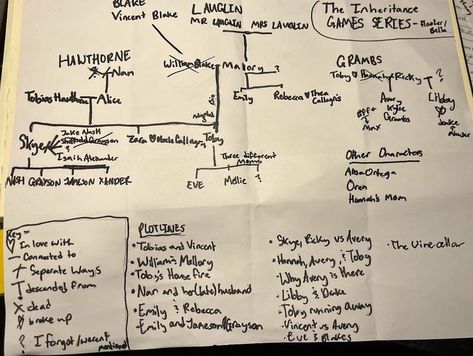 BLAKE
Vincent Blake
LAUGLIN
MR LAUGLIN MRS LAUGLIN
The Inheritance
GAMES SERIES -
HAWTHORNE
Nan
William Blake Mallory ?
GRAMBS
Toby Hannah Ricky ?
Tobias Hawthorne Alice
Emily
Rebecca Thea Calligris
Avery Kylie Grambs
Libby
BFF
Max
Drake
Skye
Jake Nash
Sheffield Grayson
?
Isaih Alexander
Zara
Toby
Three different Moms
NASH GRAYSON JAMESON XANDER
EVE Mellie ?
Other Characters
Alisa Ortega
Oren
Hannah's Mom
Key =
In love with
Connected to
Seperate Ways
descended from
dead
broke up
? I forgot/wasn't mentioned
PLOTLINES
• Tobias and Vincent
• William & Mallory
• Toby's House fire
• Nan and her (late) husband
• Emily & Rebecca
• Emily and Jameson/Grayson
• Skye, Ricky vs Avery
• Hannah, Avery & Toby
• Why Avery is there
• Libby & Drake
• Toby running away
• Vincent vs Avery
• Eve & Blakes
• The Vinecellar